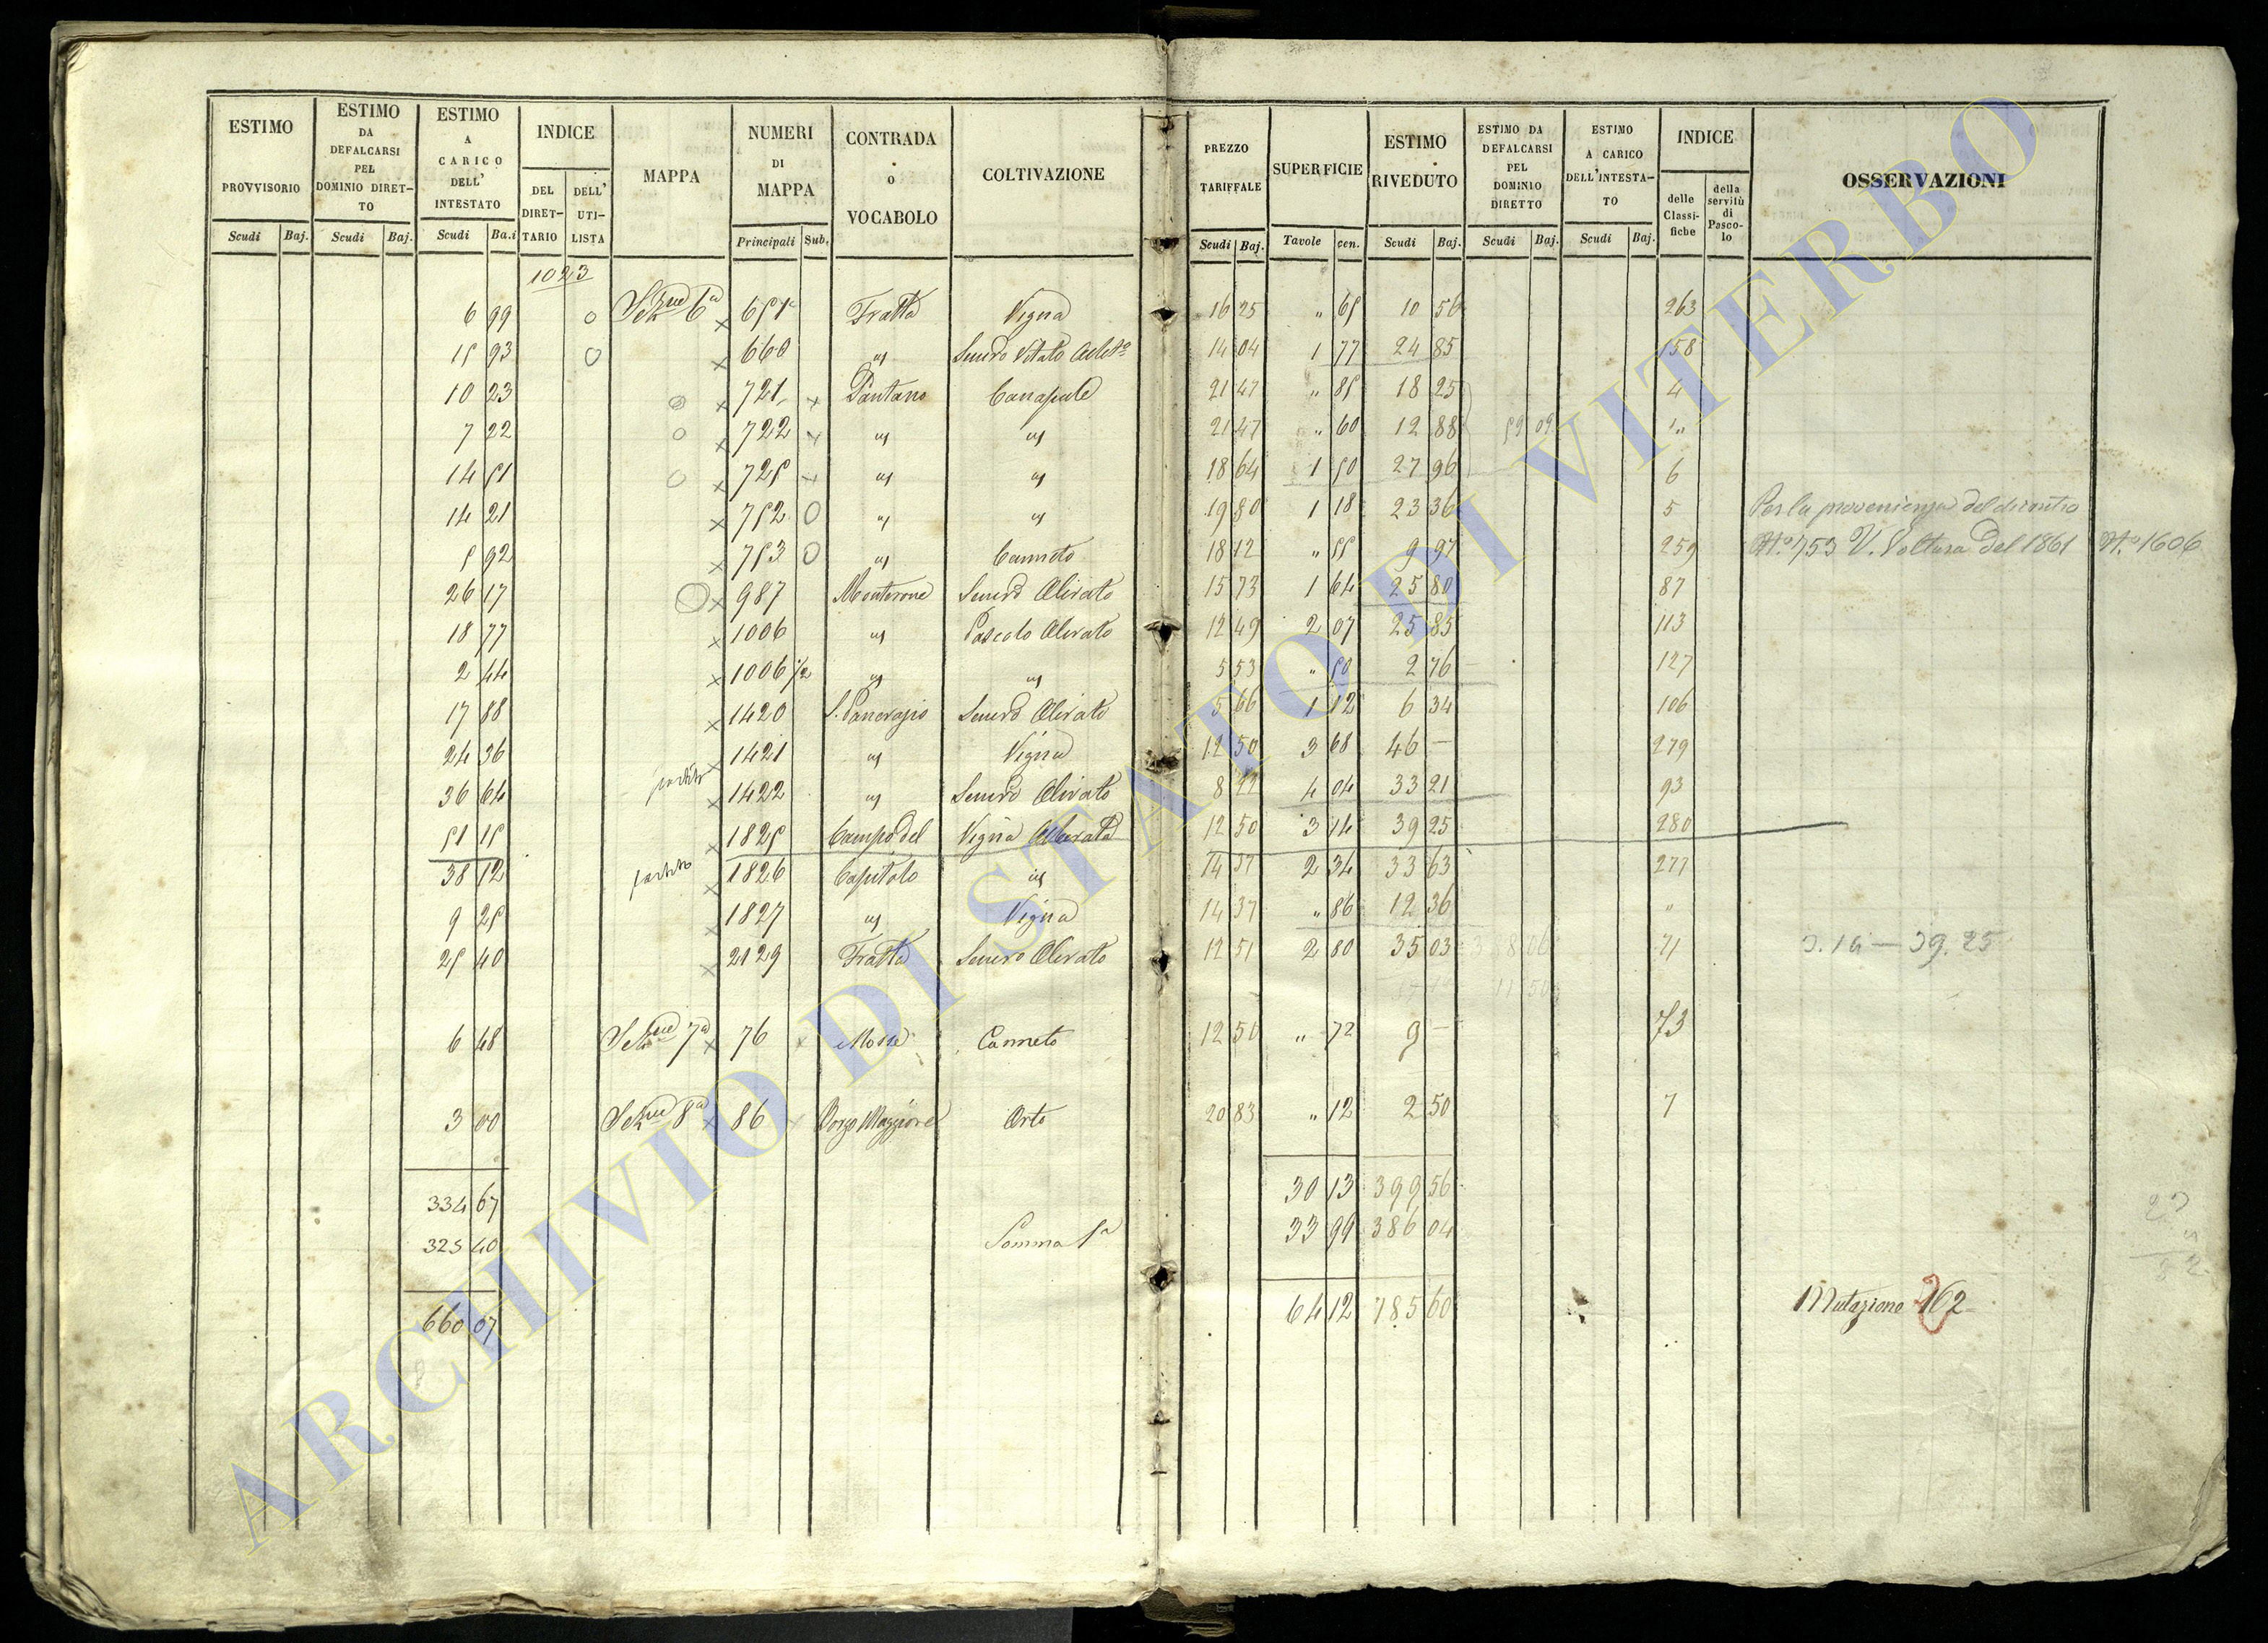 ESTIMO PROVVISORIO Scudi Baj.
ESTIMO DA DEFALCARSI PEL DOMINIO DIRETTO Scudi Baj.
ESTIMO A CARICO DELL' INTESTATO Scudi Ba.i
INDICE DEL DIRETTARIO DELL' UTILISTA
MAPPA
NUMERI DI MAPPA Principali Sub.
CONTRADA o VOCABOLO
COLTIVAZIONE
PREZZO TARIFFALE Scudi Baj.
SUPERFICIE Tavole cen.
ESTIMO RIVEDUTO Scudi Baj.
ESTIMO DA DEFALCARSI PEL DOMINIO DIRETTO Scudi Baj.
ESTIMO A CARICO DELL'INTESTATO Scudi Baj.
INDICE delle Classifiche della servitù di Pascolo
OSSERVAZIONI
1023
6 99 Fratta Vigna 16 25 " 65 10 56 263
15 93 660 " 14 04 1 77 24 85 158
10 23 721 Pantano Canapule 21 47 " 85 18 25 4
7 22 722 " " 21 47 " 60 12 88 59 09 "
14 51 725 " " 18 64 1 50 27 96 6
14 21 752 " " 19 80 1 18 23 36 5 Per la provenienza del
5 92 753 " Canneto 18 12 " 55 9 97 259 N.° 753 V. Voltura del 1861 N.° 1606
26 17 987 Monterone Olivato 15 73 1 64 25 80 87
18 77 1006 " Pascolo Olivato 12 49 2 07 25 85 113
2 44 1006 1/2 " " 5 53 " 50 2 76 127
17 88 1420 S. Pancrazio Olivato 5 66 1 12 6 34 106
24 36 1421 " Vigna 12 50 3 68 46 — 279
36 64 1422 " Olivato 4 04 33 21 93
51 15 1825 Campo del Vigna Alberata 12 50 3 14 39 25 280
38 12 1826 Capitolo " 14 37 2 34 33 63 277
9 25 1827 " Vigna 14 37 " 86 12 36 "
25 40 2129 Fratta Olivato 12 51 2 80 35 03 71 3.14 — 39.25
6 48 Sez.ne 7a 76 Canneto 12 50 " 72 9 — 73
3 00 Sez.ne 8a 86 Borgo Maggiore Orto 20 83 " 12 2 50 7
334 67 30 13 399 56
325 40 Somma 33 99 386 04
660 07 64 12 785 60 Mutazione 262
ARCHIVIO DI STATO DI VITERBO